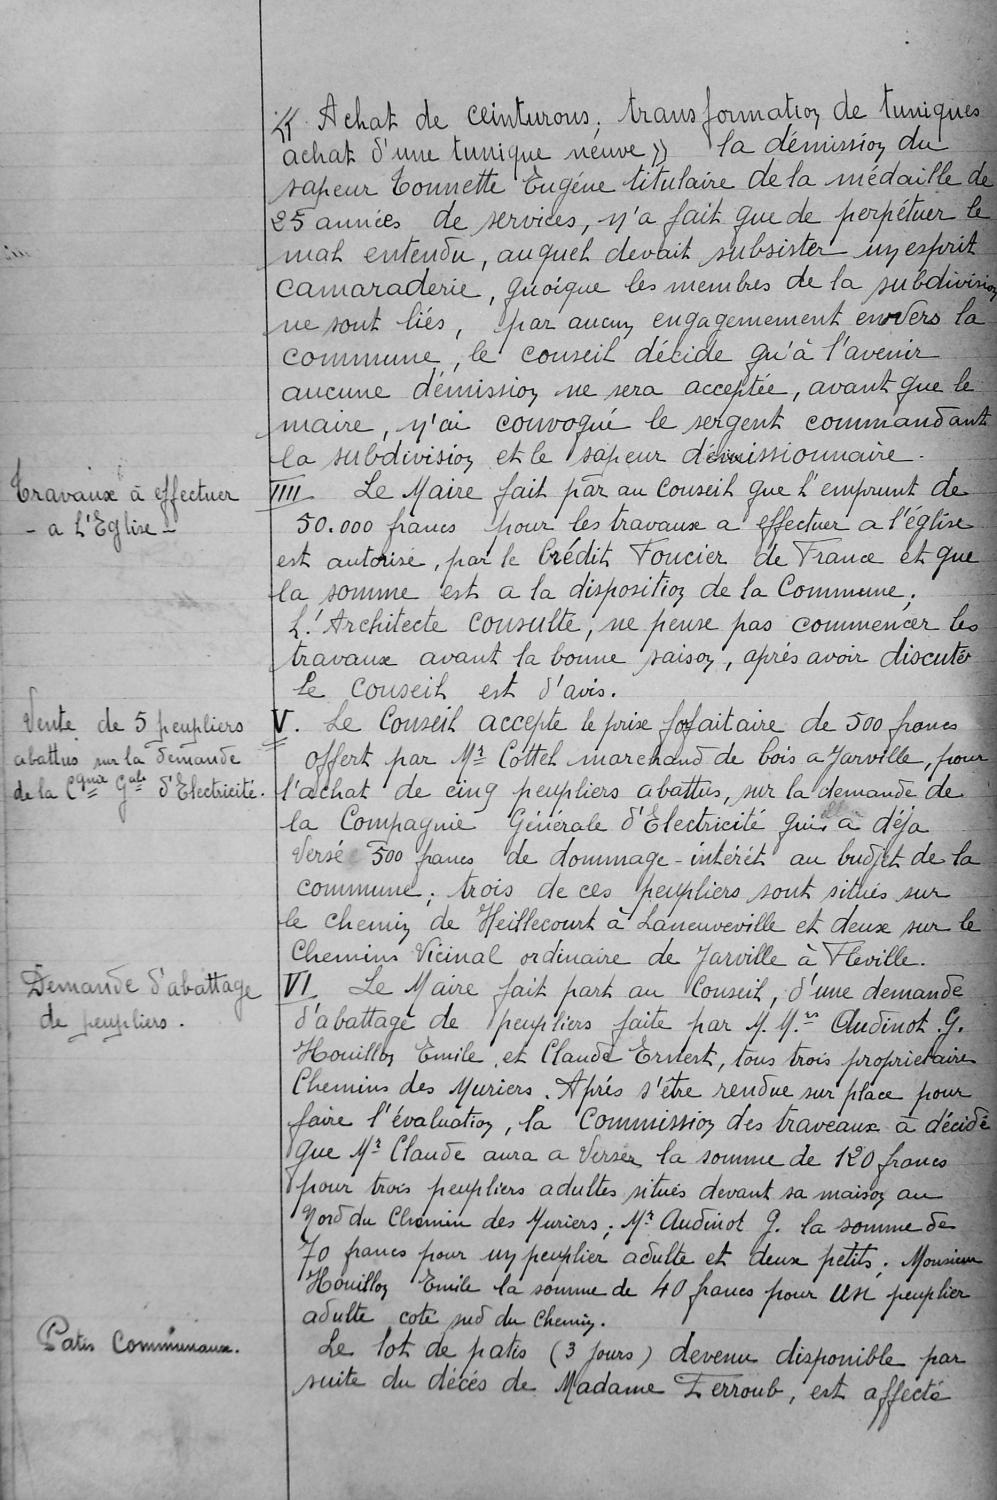 « Achat de ceinturons, transformation de tuniques
achat d'une tunique neuve » la démission du
sapeur Tonnette Eugéne titulaire de la médaille de
25 années de services, n'a fait que de perpétuer le
mal entendu, auquel devait subsister un esprit
camaraderie, quoique les membres de la subdivision
ne sont liés, par aucun engagemement envers la
commune, le conseil décide qu'à l'avenir
aucune démission ne sera acceptée, avant que le
maire, n'ai convoqué le sergent commandant
la subdivision et le sapeur démissionnaire.
Travaux à effectuer
- a L'Eglise -
IIII Le Maire fait par au Conseil que l'emprunt de
50.000 francs pour les travaux a effectuer a l'église
est autorisé, par le Crédit Foncier de France et que
la somme est a la disposition de la Commune,
L'Architecte consulté, ne pense pas commencer les
travaux avant la bonne saison, aprés avoir discuté
le conseil est d'avis.
Vente de 5 peupliers
abattus sur la demande
de la Cgnie Gale d'Electricité.
V. Le Conseil accepte le prix forfaitaire de 500 francs
offert par Mr Cottel marchand de bois a Jarville, pour
l'achat de cinq peupliers abattus, sur la demande de
la Compagnie Générale d'Electricité qui a déja
versé 500 francs de dommage-intérét au budjet de la
commune; trois de ces peupliers sont situés sur
le chemin de Heillecourt à Laneuveville et deux sur le
Chemins Vicinal ordinaire de Jarville à Fléville.
Demande d'abattage
de peupliers.
VI Le Maire fait part au Conseil, d'une demande
d'abattage de peupliers faite par M.M.rs Audinot .G.
Houillon Emile, et Claude Ernest, tous trois proprietaires
Chemins des Muriers. Aprés s'étre rendue sur place pour
faire l'évaluation, la Commission des traveaux à décidé
que Mr Claude aura a verser la somme de 120 francs
pour trois peupliers adultes situés devant sa maison au
Nord du Chemin des Muriers; Mr Audinot G. la somme de
70 francs pour un peuplier adulte et deux petits; Monsieur
Houillon Emile la somme de 40 francs pour un peuplier
adulte coté sud du chemin.
Patis Communaux.
Le lot de patis (3 jours) devenu disponible par
suite du décés de Madame Ferroub, est affecté